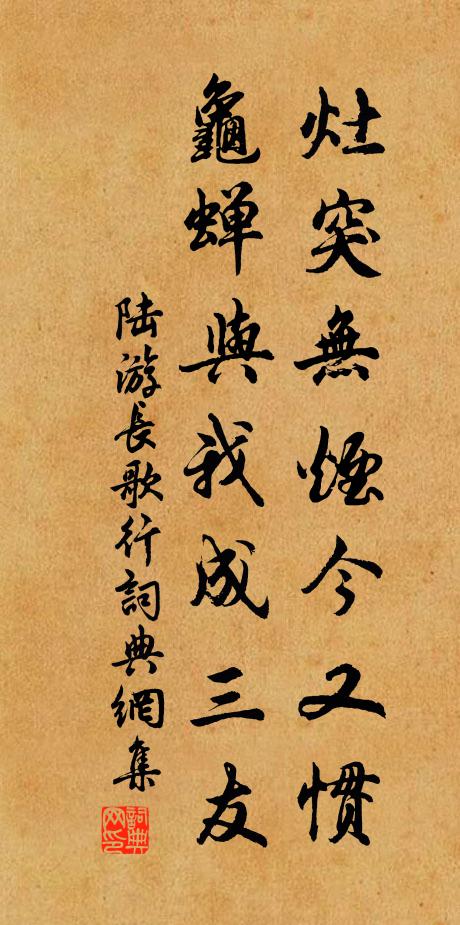 灶突無煙今又慣
龜蟬與我成三友
陆游長歌行詞典網集
詞典网印